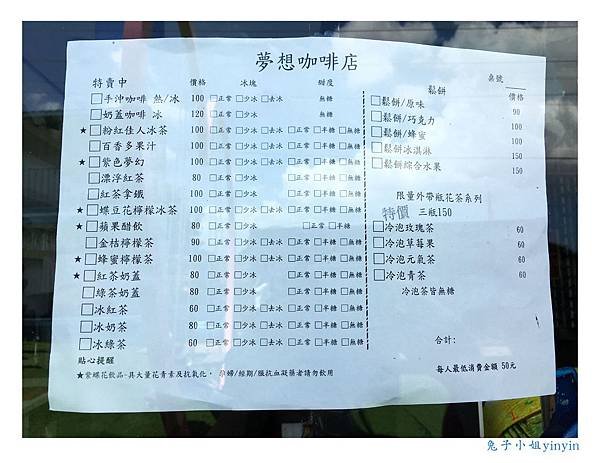 夢想咖啡店
特賣中 價格 冰塊 甜度
□手沖咖啡 熱/冰 100 □正常 □少冰 □去冰 無糖
□奶蓋咖啡 冰 120 □正常 □少冰 無糖
★□粉紅佳人冰茶 100 □正常 □少冰 □去冰 □正常 □半糖 □無糖
□百香多果汁 100 □正常 □少冰 □去冰 □正常 □半糖 □無糖
★□紫色夢幻 100 □正常 □少冰 □去冰 □正常 □半糖 □無糖
□漂浮紅茶 80 □正常 □少冰 □正常 □半糖 □無糖
□紅茶拿鐵 100 □正常 □少冰 □正常 □半糖 □無糖
★□蝶豆花檸檬冰茶 100 □正常 □少冰 □去冰 □正常 □半糖 □無糖
★□蘋果醋飲 80 □正常 □少冰 □正常 □半糖
□金桔檸檬茶 90 □正常 □少冰 □去冰 □正常 □半糖 □無糖
★□蜂蜜檸檬茶 100 □正常 □少冰 □去冰 □正常 □半糖 □無糖
★□紅茶奶蓋 80 □正常 □少冰 □正常 □半糖 □無糖
□綠茶奶蓋 80 □正常 □少冰 □正常 □半糖 □無糖
□冰紅茶 60 □正常 □少冰 □去冰 □正常 □半糖 □無糖
□冰奶茶 80 □正常 □少冰 □去冰 □正常 □半糖 □無糖
□冰綠茶 60 □正常 □少冰 □去冰 □正常 □半糖 □無糖
貼心提醒
★紫蝶花飲品-具大量花青素及抗氧化, 孕婦/經期/服抗血凝藥者請勿飲用
桌號
鬆餅 價格
□鬆餅/原味 90
□鬆餅/巧克力 100
□鬆餅/蜂蜜 100
□鬆餅冰淇淋 150
□鬆餅綜合水果 150
限量外帶瓶花茶系列
特價 三瓶150
□冷泡玫瑰茶 60
□冷泡草莓果 60
□冷泡元氣茶 60
□冷泡青茶 60
冷泡茶皆無糖
合計:
每人最低消費金額 50元
兔子小姐yinyin